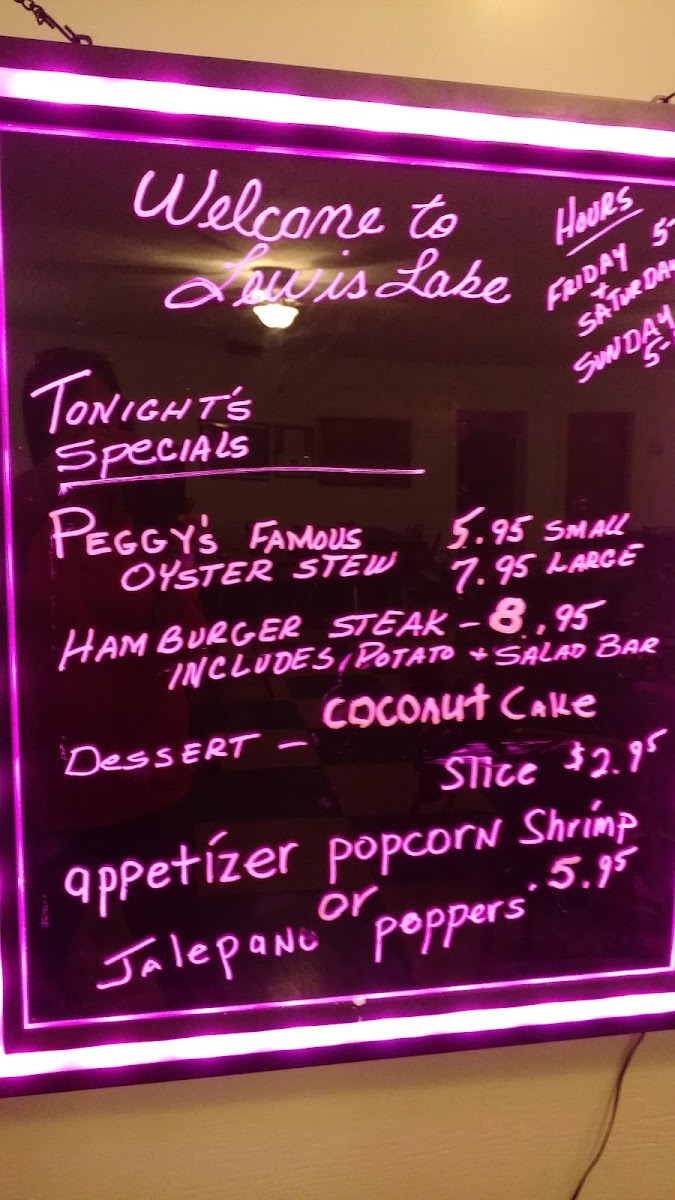 Welcome to
Lewis Lake
HOURS
FRIDAY 5-
+
SATURDAY
SUNDAY
5-
TONIGHT'S
SPECIALS
PEGGY'S FAMOUS 5.95 SMALL
OYSTER STEW 7.95 LARGE
HAMBURGER STEAK - 8.95
INCLUDES, POTATO + SALAD BAR
COCONUT CAKE
DESSERT -
Slice $2.95
appetizer popcorn Shrimp
or 5.95
Jalepano poppers